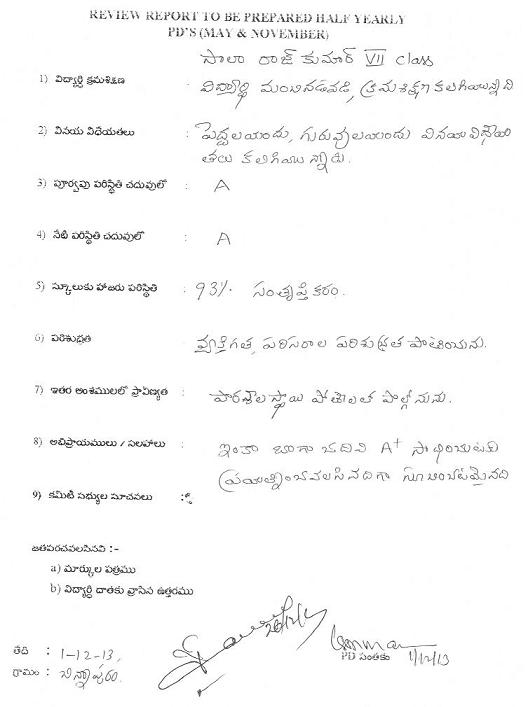 REVIEW REPORT TO BE PREPARED HALF YEARLY
PD'S (MAY & NOVEMBER)
సాలా రాజ్ కుమార్ VII class
1) విద్యార్థి క్రమశిక్షణ : విద్యార్థి మంచినడవడి, క్రమశిక్షణ కలిగియున్నాది
2) వినయ విధేయతలు : పెద్దలయందు, గురువులయందు వినయవిధేయ
తలు కలిగియున్నాడు.
3) పూర్వపు పరిస్థితి చదువులో : A
4) నేటి పరిస్థితి చదువులో : A
5) స్కూలుకు హాజరు పరిస్థితి : 93%. సంతృప్తికరం.
6) పరిశుభ్రత : వ్యక్తిగత, పరిసరాల పరిశుభ్రత పాటించును.
7) ఇతర అంశములలో ప్రావీణ్యత : పాఠశాలస్థాయి పోటీలలో పాల్గొనును.
8) అభిప్రాయములు / సలహాలు : ఇంకా బాగా చదివి A+ సాధించుటకు
ప్రయత్నించవలసినదిగా సూచించటమైనది
9) కమిటి సభ్యుల సూచనలు :
జతపరచవలసినవి :-
a) మార్కుల పత్రము
b) విద్యార్థి దాతకు వ్రాసిన ఉత్తరము
తేది : 1-12-13,
గ్రామం : చిన్నాపురం.
PD సంతకం 1/12/13